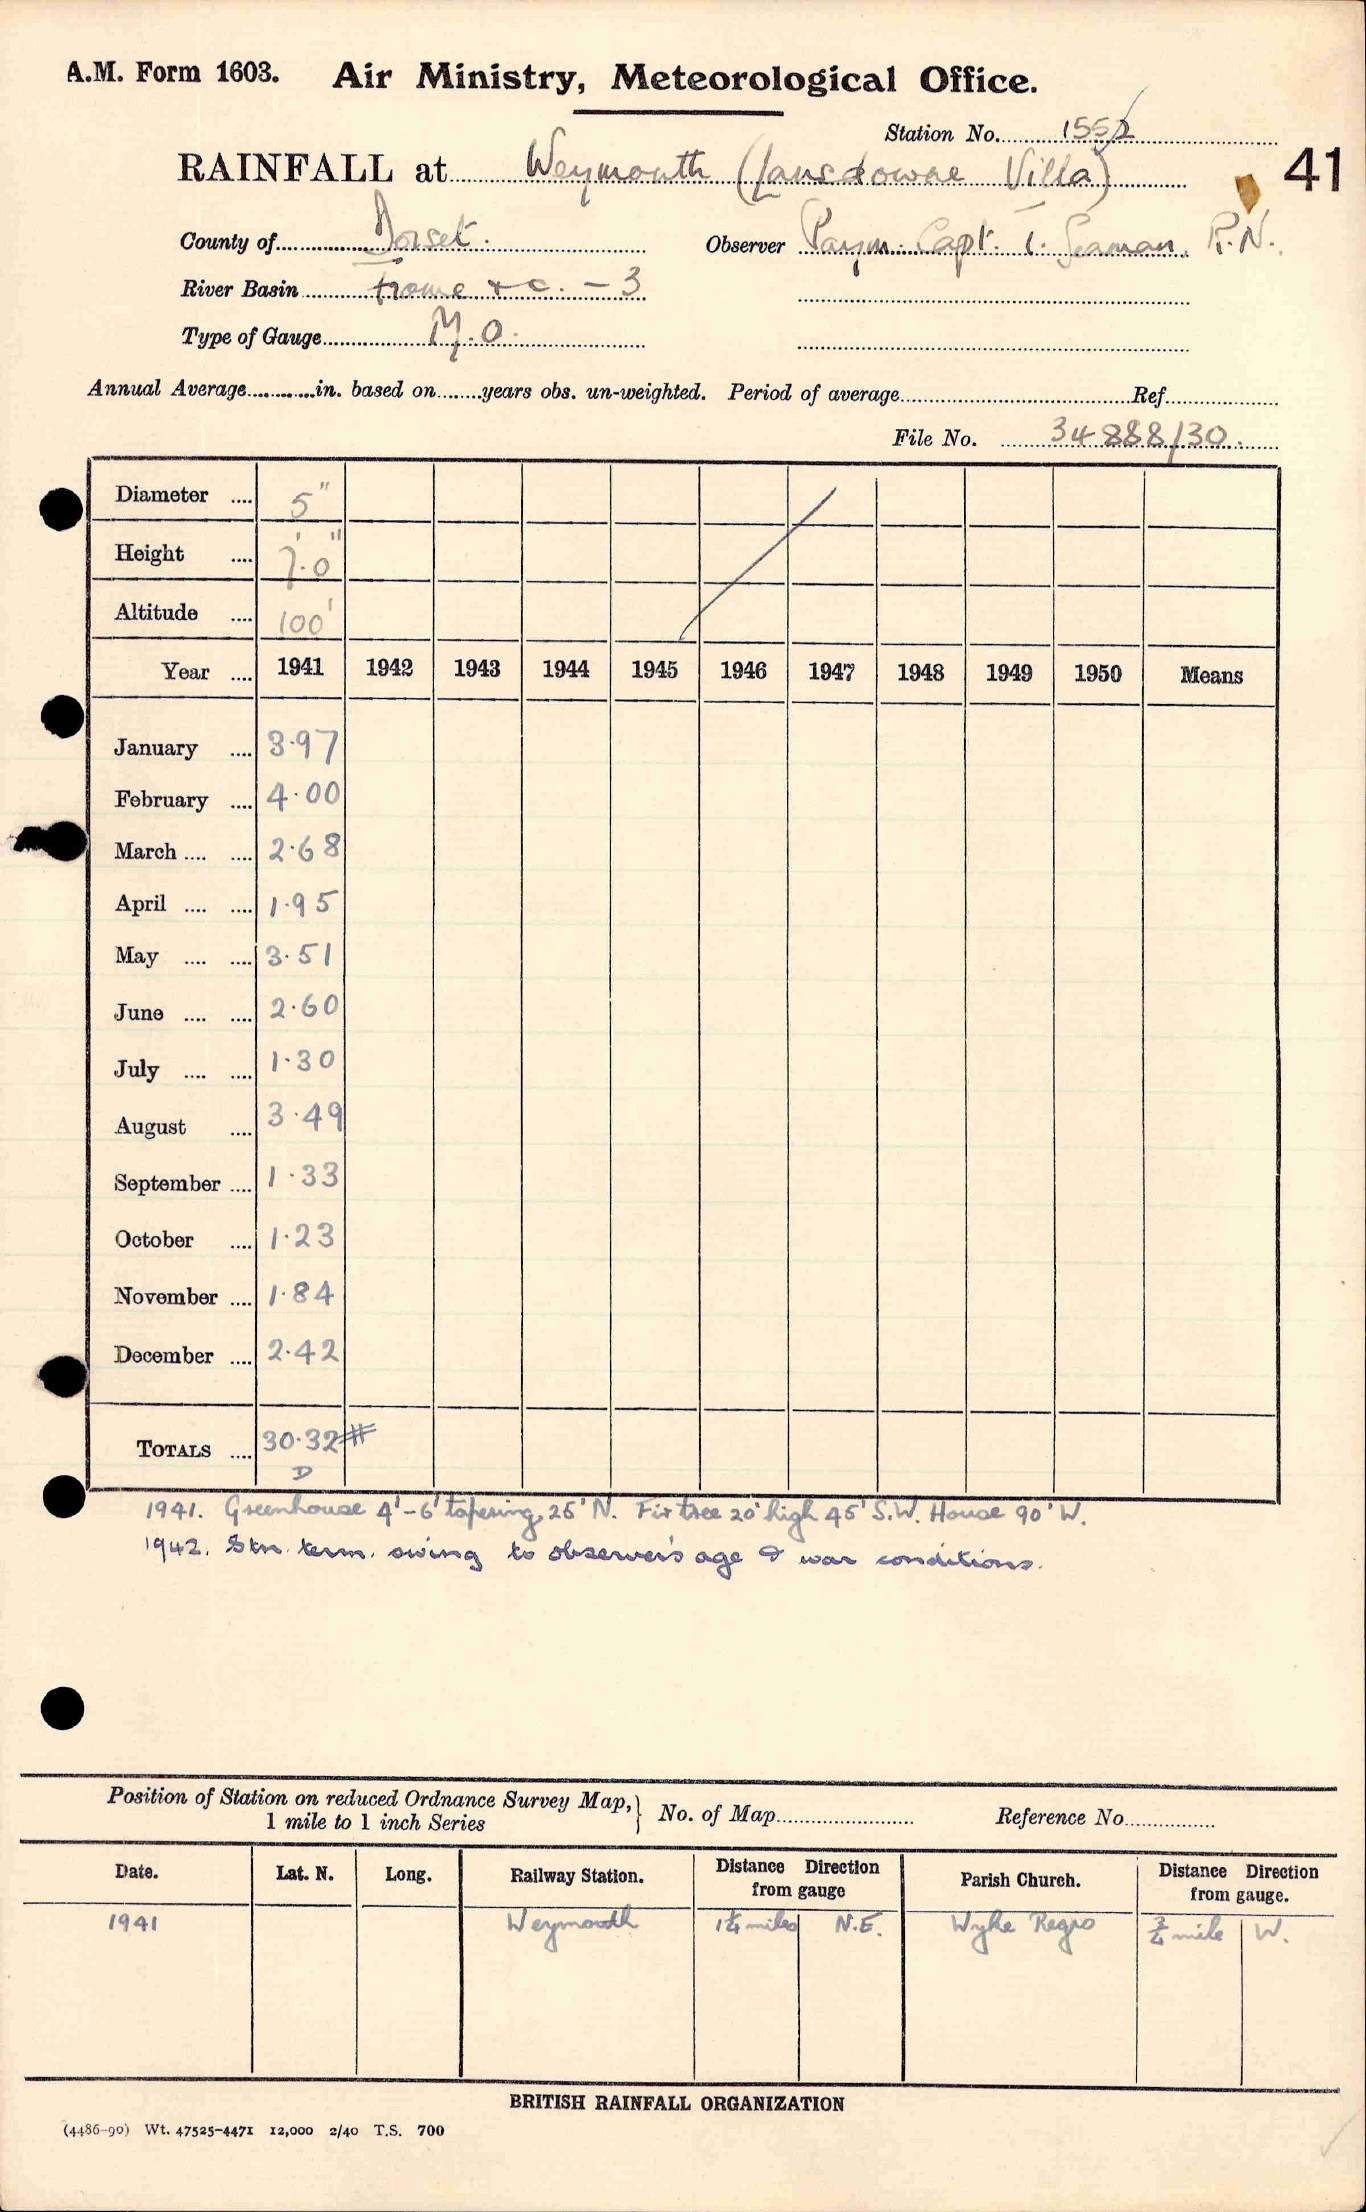 A.M. Form 1603. Air Ministry, Meteorological Office.
Station No. 1552
41
RAINFALL at Weymouth (Lansdowne Villa)
County of Dorset. Observer Paym. Capt. T. Seaman, R.N.
River Basin Frome & c. - 3
Type of Gauge M.O.
Annual Average in. based on years obs. un-weighted. Period of average Ref.
File No. 34888/30.
Diameter 5"
Height 0"
Altitude 100'
Year 1941 1942 1943 1944 1945 1946 1947 1948 1949 1950 Means
January 3.97
February 4.00
March 2.68
April 1.95
May 3.51
June 2.60
July 1.30
August 3.49
September 1.33
October 1.23
November 1.84
December 2.42
TOTALS 30.32 #
D
1941. Greenhouse 4'-6' tapering, 25' N. Fir tree 20' high 45' S.W. House 90' W.
1942. Stn. term. owing to observer's age & war conditions.
Position of Station on reduced Ordnance Survey Map,} No. of Map Reference No.
1 mile to 1 inch Series
Date. Lat. N. Long. Railway Station. Distance Direction from gauge Parish Church. Distance Direction from gauge.
1941 Weymouth 1¼ miles N.E. Wyke Regis ¾ mile W.
BRITISH RAINFALL ORGANIZATION
(4486-90) Wt. 47525-4471 12,000 2/40 T.S. 700